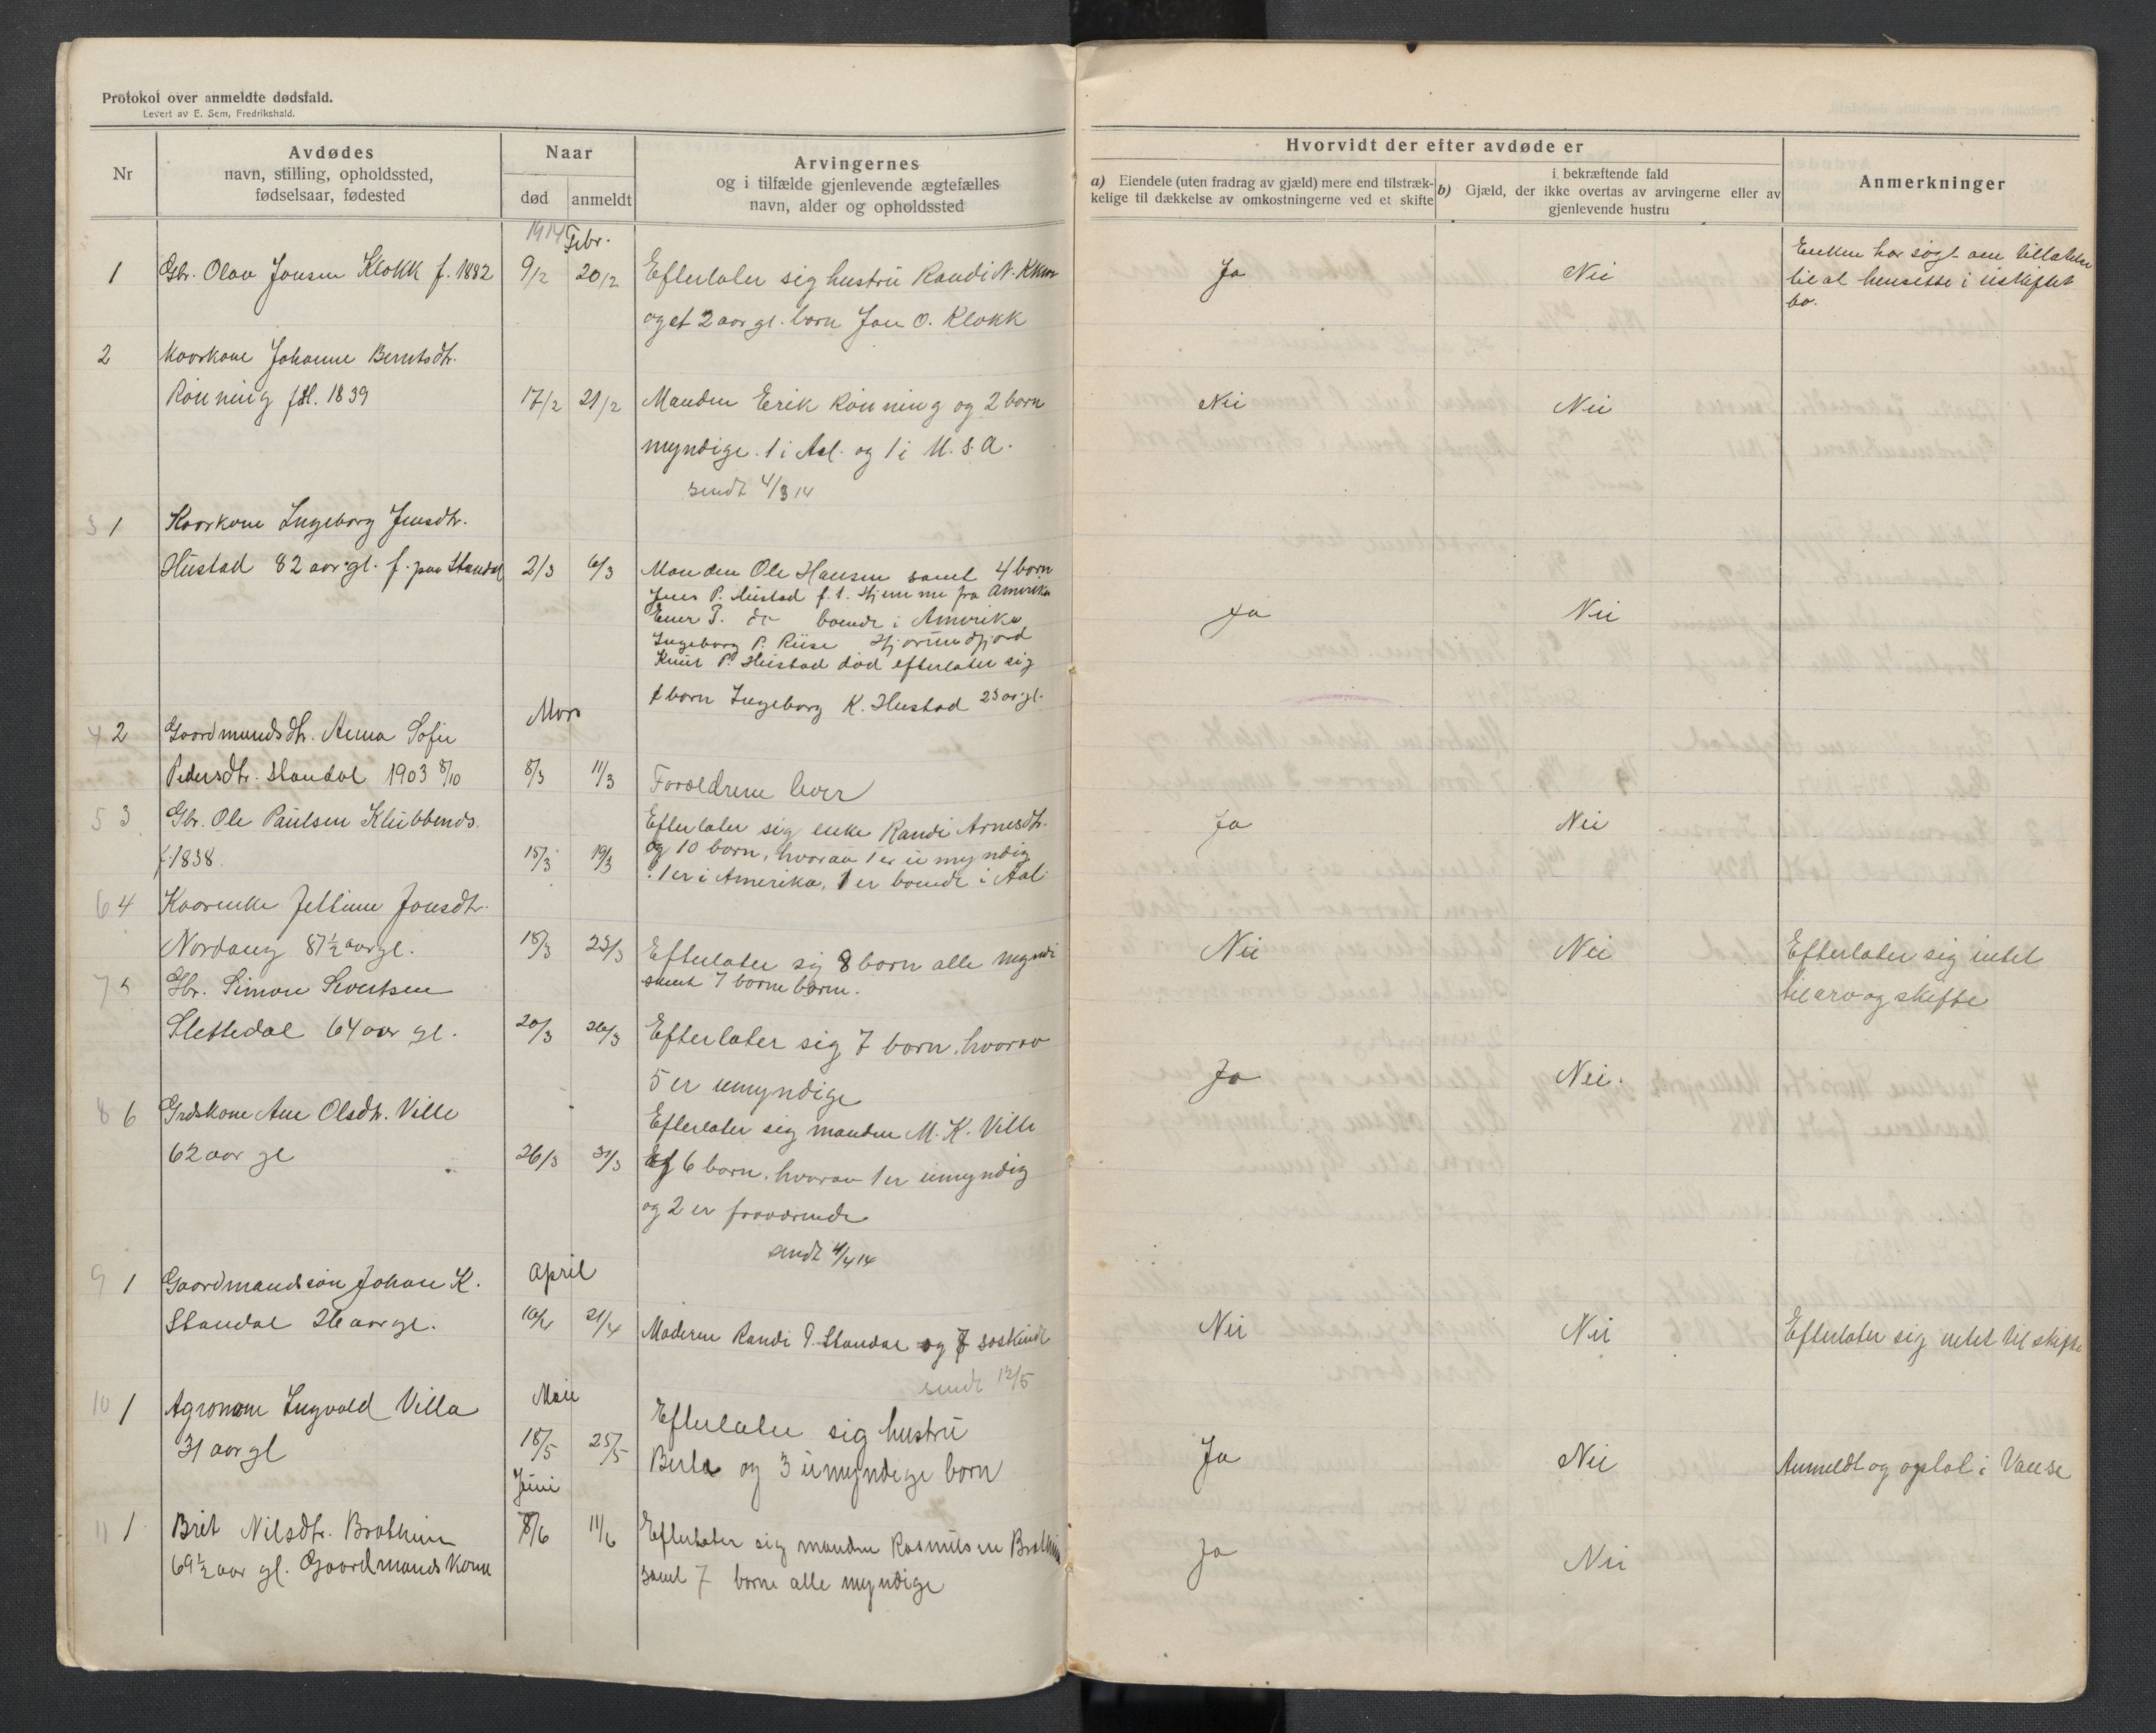 Protokol over anmeldte dødsfald.
Levert av E. Sem, Fredrikshald.
Nr
Avdødes
navn, stilling, opholdssted,
fødselsaar, fødested
Naar
død
anmeldt
Arvingernes
og i tilfælde gjenlevende ægtefælles
navn, alder og opholdssted
Hvorvidt der efter avdøde er
a) Eiendele (uten fradrag av gjæld) mere end tilstræk-
kelige til dækkelse av omkostningerne ved et skifte
i bekræftende fald
b) Gjæld, der ikke overtas av arvingerne eller av
gjenlevende hustru
Anmerkninger
1914 Febr.
1 Gbr. Olav Jonsen Klokk f. 1882 9/2 20/2 Efterlater sig hustru Randi N. Ja Nei Enken har søgt om tillatelse
og et 2 aar gl. born Jon O. Klokk til at hensitte i uskiftet
bo.
2 Kaarkone Johanne Berntsdtr.
Rønning 1839 17/2 21/2 Manden Erik Rønning og 2 born Nei Nei
myndige. 1 i Aal. og 1 i U.S.A.
sendt 4/3 14
3 1 Kaarkone Ingeborg Jensdtr.
Hustad 82 aar gl. f. paa Standal 2/3 6/3 Manden Ole Hansen samt 4 born
Jens P. Hustad f. t. hjemme fra Amerika
P. do boende i Amerika Ja Nei
Ingeborg P. Riise Hjørundfjord
Knut P. Hustad død efterlater sig
1 born Ingeborg K. Hustad 23 aar gl.
Mars
4 2 Gaardmandsdtr. Anna Sofie
Pedersdtr. Standal 1903 8/10 8/3 11/3 Foreldrene lever
5 3 Gbr. Ole Paulsen Klubbenes. Efterlater sig enke Randi Arnesdtr. Ja Nei
f. 1838. 15/3 19/3 og 10 born, hvorav 1 er umyndig
1 er i Amerika, 1 er boende i Aal.
6 4 Kaarenke Jonsdtr.
Nordang 87½ aar gl. 18/3 23/3 Efterlater sig 8 born alle myndi Nei Nei Efterlater sig intet
samt 7 borneborn. til arv og skifte
7 5 Gbr. Simon Sivertsen
Slettedal 64 aar gl. 20/3 26/3 Efterlater sig 7 born, hvorav
5 er umyndige Ja Nei.
8 6 Grdskone Ane Olsdtr. Ville Efterlater sig manden M. K. Ville
62 aar gl 26/3 31/3 og 6 born, hvorav 1 er umyndig
og 2 er fraværende
sendt 4/4 14
April
9 1 Gaardmandsøn Johan K.
Standal 26 aar gl. 10/4 21/4 Moderen Randi P. Standal og 7 søskende Nei Nei Efterlater sig intet til skifte
sendt 12/5
Mai
10 1 Agronom Ingvald Villa Efterlater sig hustru
31 aar gl 18/5 25/5 Berta og 3 umyndige born Ja Nei Anmeldt og optat i Vanse
Juni
11 1 Brit Nilsdtr. Brathein 8/6 11/6 Efterlater sig manden Rasmus Brathein Ja Nei
69½ aar gl. Gaardmands Kone samt 7 borne alle myndige